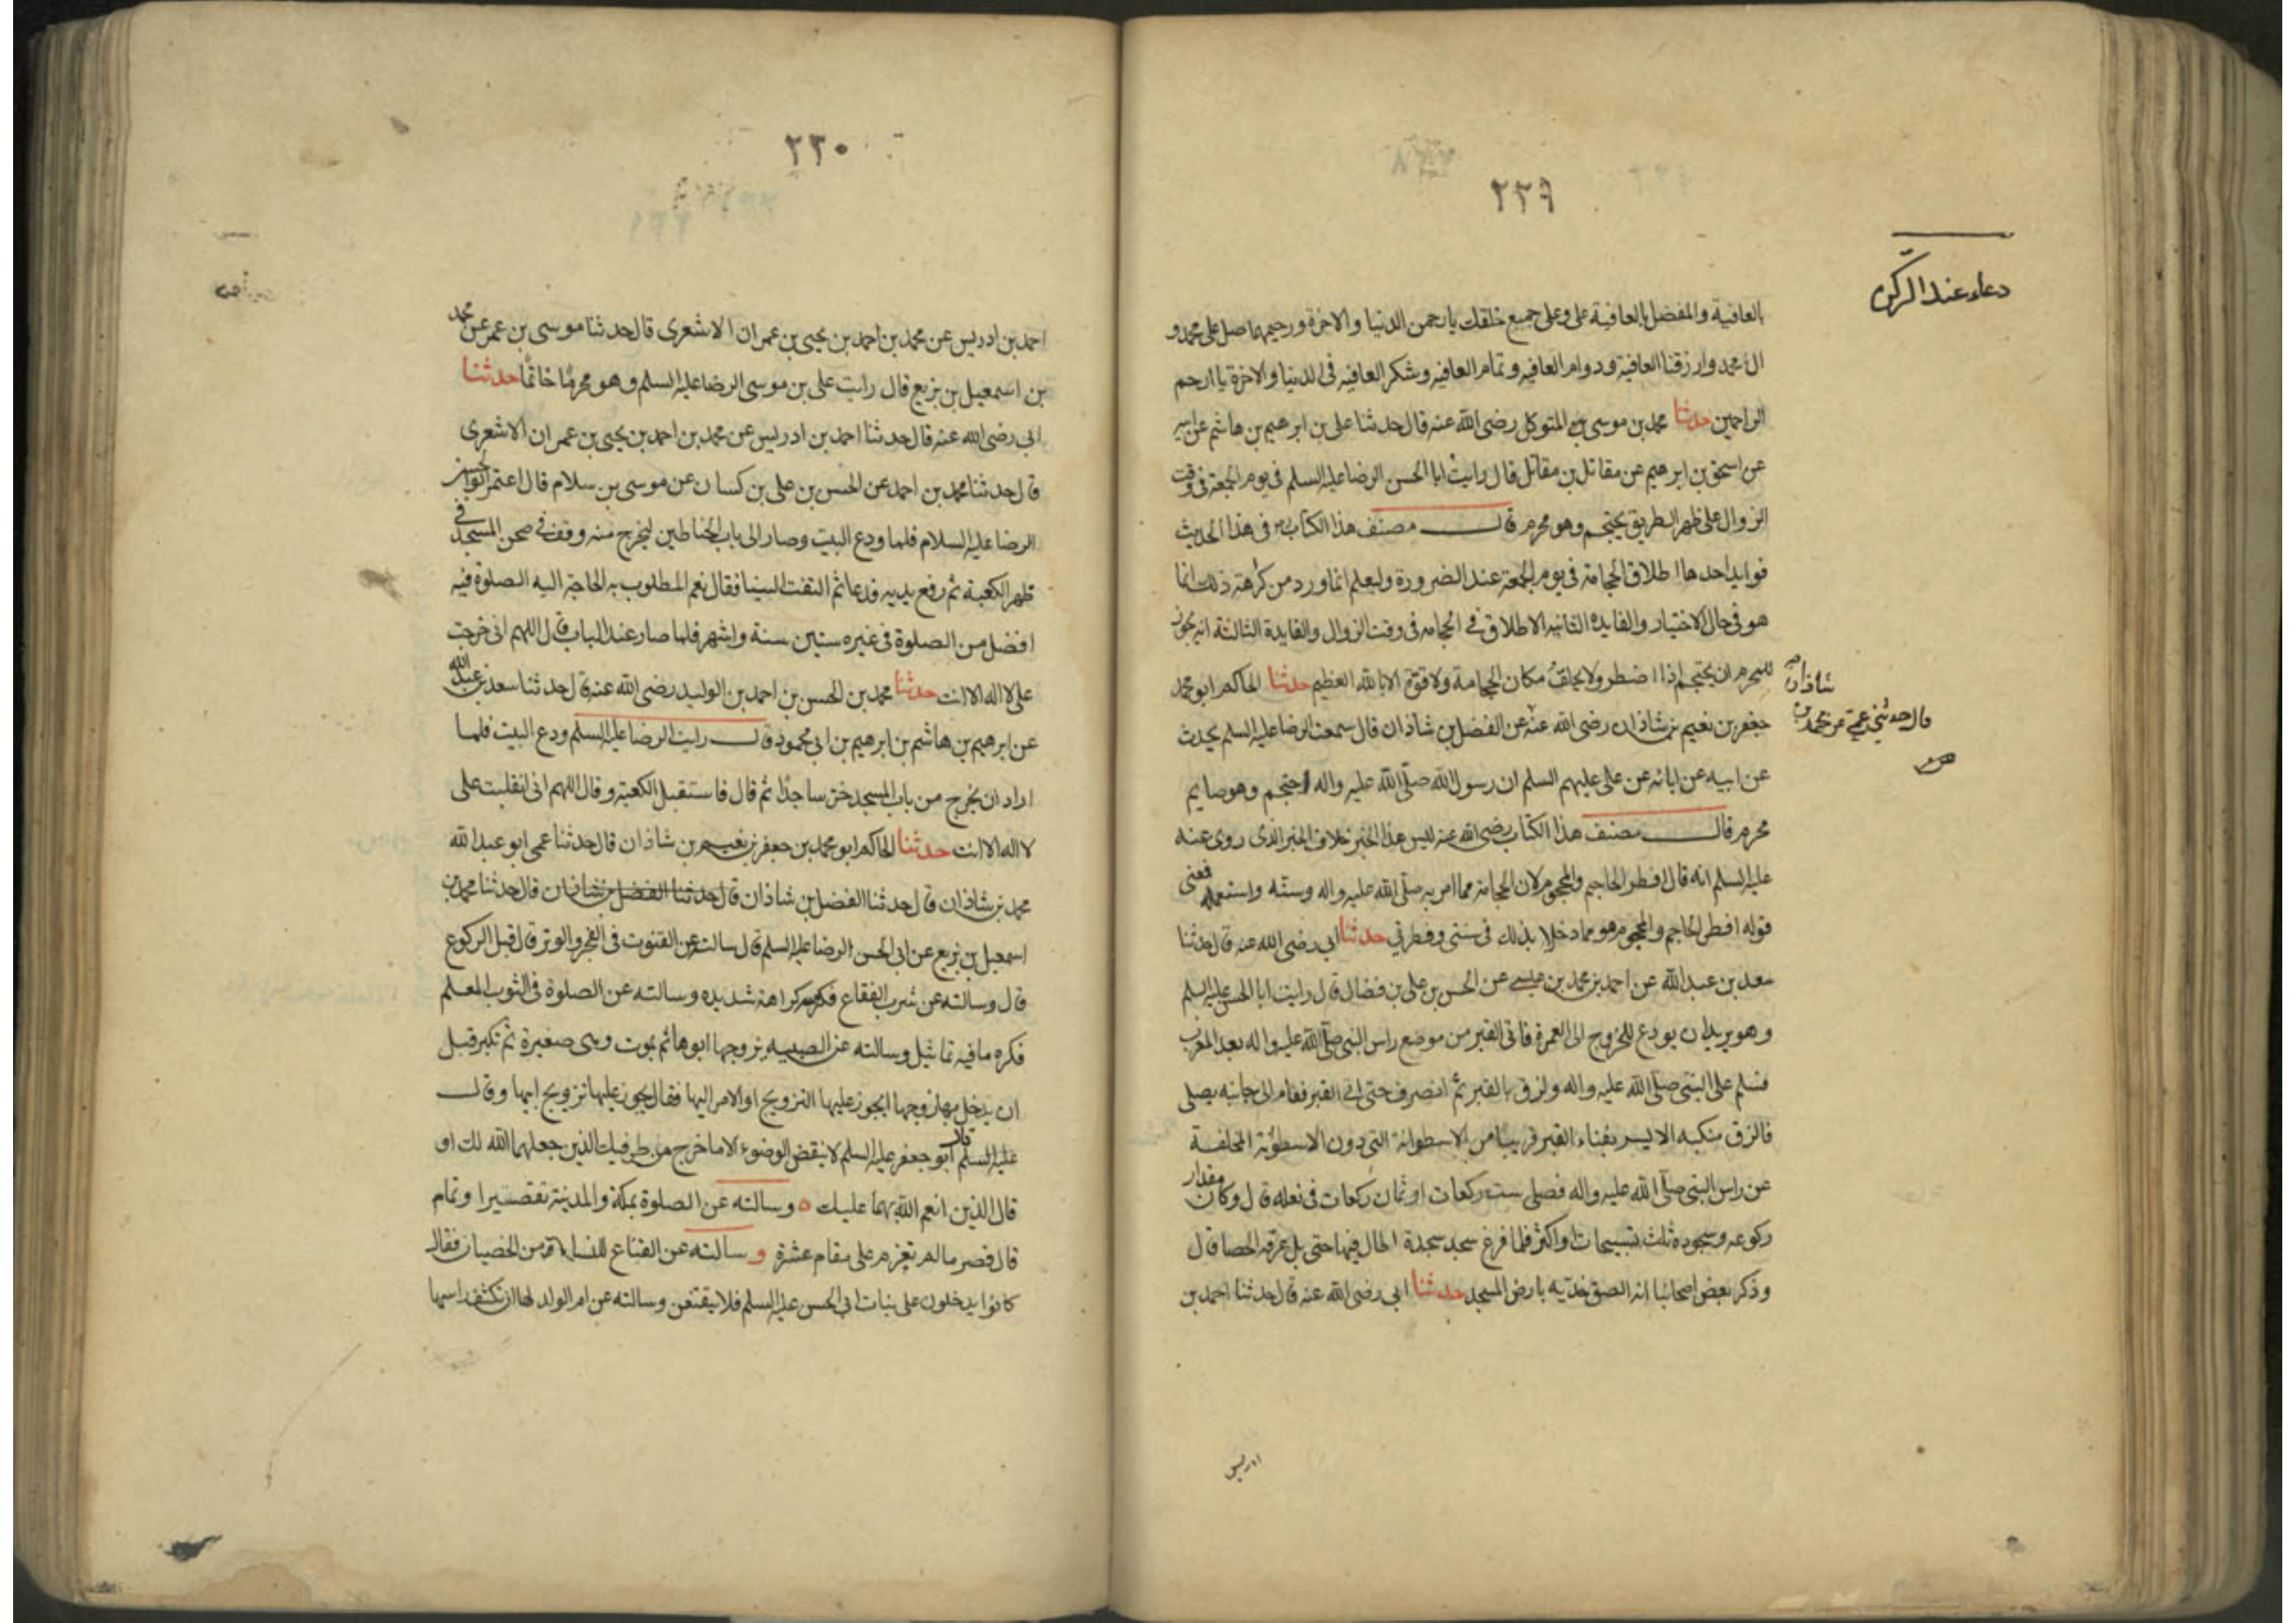 ٢٢٩
دعاء عند الركن
بالعافية والمفضل بالعافية على وعلى جميع خلقك يا رحمن الدنيا والاخرة ورحيمهما صل على محمد و
ال محمد وارزقنا العافية ودوام العافيه وتمام العافيه وشكر العافيه فى الدنيا والاخرة يا ارحم
الراحمين حدثنا محمد بن موسى بن المتوكل رضى الله عنه قال حدثنا على بن ابرهيم بن هاشم عن ابيه
عن اسحق بن ابرهيم عن مقاتل بن مقاتل قال رايت ابا الحسن الرضا عليه السلم فى يوم الجمعة فى وقت
الزوال على ظهر الطريق يحتجم وهو محرم قال مصنف هذا الكتاب فى هذا الحديث
فوايد احدها اطلاق الحجامة فى يوم الجمعة عند الضرورة وليعلم انما ورد من كراهة ذلك انما
هو فى حال الاختيار والفايده الثانيه الاطلاق فى الحجامه فى وقت الزوال والفايدة الثالثة انه يجوز
للمحرم ان يحتجم اذا اضطر ولا يحلق مكان الحجامة ولا قوة الا بالله العظيم حدثنا الحاكم ابو محمد
جعفر بن نعيم بن شاذان رضى الله عنه عن الفضل بن شاذان قال سمعت الرضا عليه السلم يحدث
شاذان
قال حدثنى عمى عن محمد بن
عن ابيه عن ابائه عن على عليهم السلم ان رسول الله صلى الله عليه واله احتجم وهو صايم
محرم قال مصنف هذا الكتاب رضى الله عنه ليس هذا الخبر خلاف الخبر الذى روى عنه
عليه السلم انه قال افطر الحاجم والمحجوم لان الحجامة مما امر به صلى الله عليه واله وسنه واستعمله فمعنى
قوله افطر الحاجم والمحجوم هو مما دخلا بذلك فى سنتى وفطرتي حدثنا ابى رضى الله عنه قال حدثنا
سعد بن عبد الله عن احمد بن محمد بن عيسى عن الحسن بن على بن فضال قال رايت ابا الحسن عليه السلم
وهو يريد ان يودع للخروج الى العمرة فاتى القبر من موضع راس النبى صلى الله عليه واله بعد المغرب
فسلم على النبى صلى الله عليه واله ولزق بالقبر ثم انصرف حتى اتى القبر فقام الى جانبه يصلى
فالزق منكبه الايسر بفناء القبر قريبا من الاسطوانة التى دون الاسطوانة المخلفة
عن راس النبى صلى الله عليه واله فصلى ست ركعات او ثمان ركعات فى نعله قال وكان مقدار
ركوعه وسجوده ثلث تسبيحات او اكثر فلما فرغ سجد سجدة اطال فيها حتى بل عرقه الحصا قال
وذكر بعض اصحابنا انه الصق خديه بارض المسجد حدثنا ابى رضى الله عنه قال حدثنا احمد بن
ادريس
٢٣٠
احمد بن ادريس عن محمد بن احمد بن يحيى بن عمران الاشعرى قال حدثنا موسى بن عمر عن محمد
بن اسمعيل بن بزيع قال رايت على بن موسى الرضا عليه السلم وهو محرما خاتما حدثنا
ابى رضى الله عنه قال حدثنا احمد بن ادريس عن محمد بن احمد بن يحيى بن عمران الاشعرى
قال حدثنا محمد بن احمد عن الحسن بن على بن كسان عن موسى بن سلام قال اعتمر ابو الحسن
الرضا عليه السلام فلما ودع البيت وصار الى باب الحناطين ليخرج منه وقف فى صحن المسجد فى
ظهر الكعبة ثم رفع يديه فدعا ثم التفت الينا فقال نعم المطلوب به الحاجة اليه الصلوة فيه
افضل من الصلوة فى غيره ستين سنة واشهر فلما صار عند الباب قال اللهم انى خرجت
على لا اله الا انت حدثنا محمد بن الحسن بن احمد بن الوليد رضى الله عنه قال حدثنا سعد بن عبد الله
عن ابرهيم بن هاشم بن ابرهيم بن ابى محمود قال رايت الرضا عليه السلم ودع البيت فلما
اراد ان يخرج من باب المسجد خر ساجدا ثم قال فاستقبل الكعبة وقال اللهم انى انقلبت على
لا اله الا انت حدثنا الحاكم ابو محمد بن جعفر بن نعيم بن شاذان قال حدثنا عمى ابو عبد الله
محمد بن شاذان قال حدثنا الفضل بن شاذان قال حدثنا الفضل بن شاذان قال حدثنا محمد بن
اسمعيل بن بزيع عن ابى الحسن الرضا عليه السلم قال سالته عن القنوت فى الفجر والوتر قال قبل الركوع
قال وسالته عن شرب الفقاع فكرهه كراهة شديده وسالته عن الصلوة فى الثوب المعلم
فكره ما فيه تماثيل وسالته عن الصبيه يزوجها ابوها ثم يموت وهى صغيرة ثم تكبر قبل
ان يدخل بها زوجها ايجوز عليها التزويج او الامر اليها فقال يجوز عليها تزويج ابيها وقال
عليه السلم قال ابو جعفر عليه السلم لا ينقض الوضوء الا ما خرج من طرفيك الذين جعلهما الله لك او
قال الذين انعم الله بهما عليك ه وسالته عن الصلوة بمكة والمدينة تقصيرا وتمام
قال قصر ما لم تعزم على مقام عشرة و سالته عن القناع للنساء من الخصيان فقال
كانوا يدخلون على بنات ابى الحسن عليه السلم فلا يقتعن وسالته عن ام الولد لها ان تكشف راسها